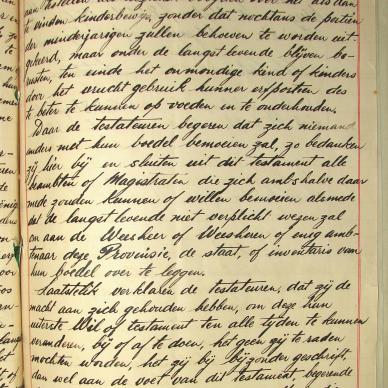 te vinden kinderbewijs, zonder dat nochtans de portien
der minderjarigen zullen behoeven te worden uit-
gekeerd, maar onder de langstlevende blijven be-
rusten, ten einde het onmondige kind of kinders
door het vruchtgebruik hunner erfportien des
te beter te kunnen op voeden en te onderhouden.
Daar de testateuren begeren dat zich niemand
anders met hun boedel bemoeien zal, zo bedanken
zij hier bij en sluiten uit dit testament alle
Beambten of Magistraten die zich ambtshalve daar
mede zouden kunnen of willen bemoeien alsmede
dat de langstlevende niet verplicht wezen zal
om aan de Weesheer of Weesheren of enig amb-
tenaar dezer Provinsie, de staat, of inventaris van
hun boedel over te leggen.
Laatstelik verklaren de testateuren, dat zij de
macht aan zich gehouden hebben, om deze hun
uiterste Wil of testament ten alle tyden te kunnen
veranderen, bij of af te doen, het geen zij te raden
mochten worden, het zij bij bijzonder geschrift,
dan wel aan de voet van dit testament begerende